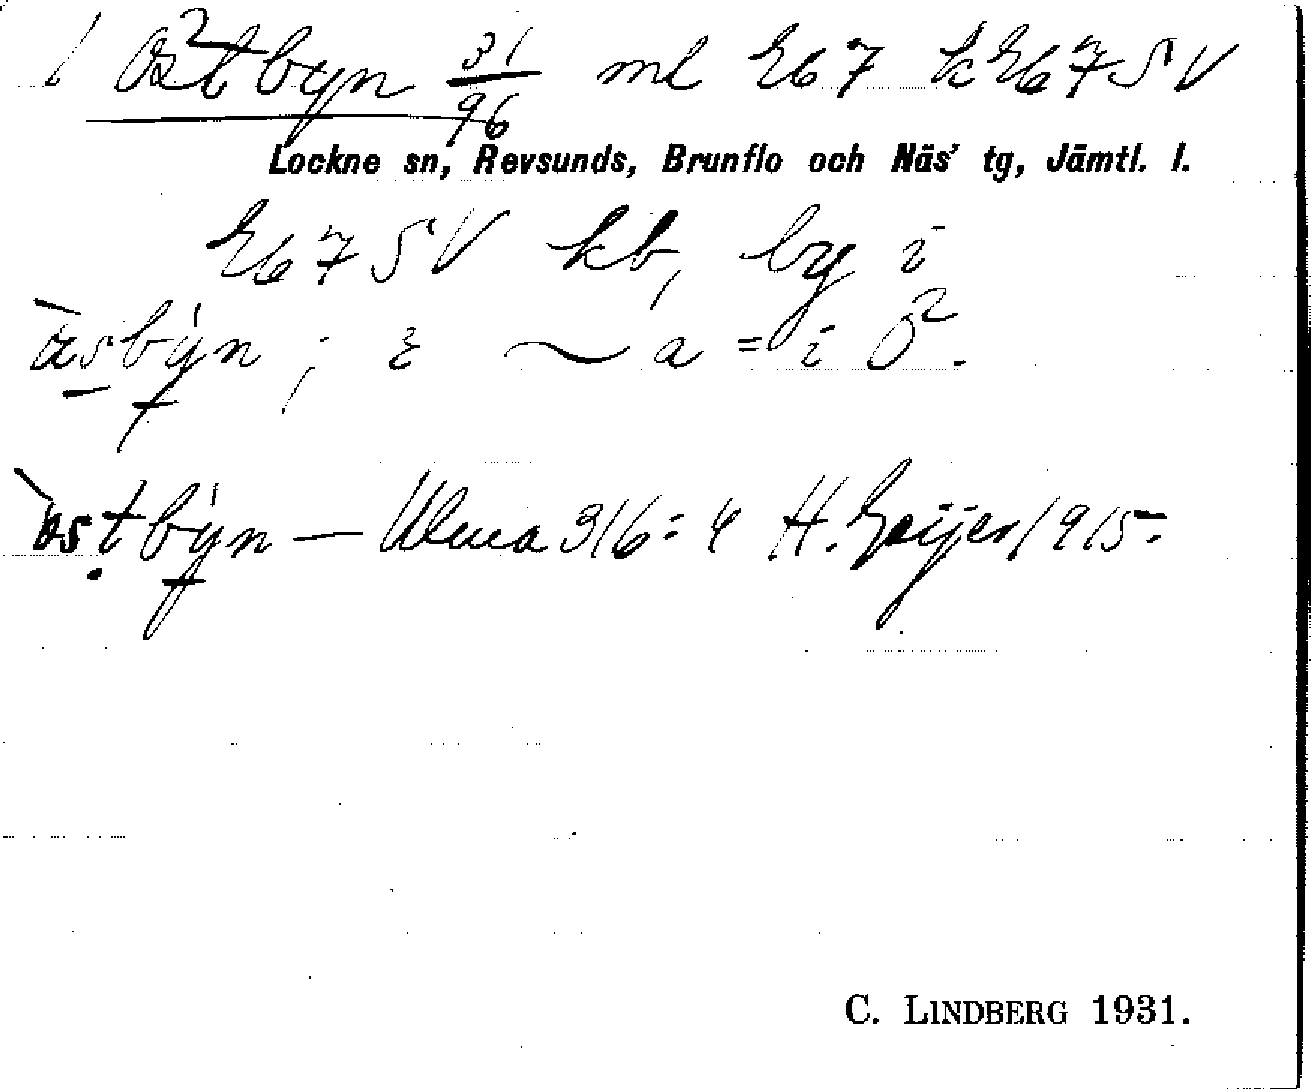 1 Östbyn 31/96 ml E67 k E67SV
Lockne sn, Revsunds, Brunflo och Näs' tg, Jämtl. l.
E67SV kb, by i
àsbýn ; ɛ ~ a = i Ö.
òstbýn — Ulma 316:4 H. Geijer 1915.
C. LINDBERG 1931.